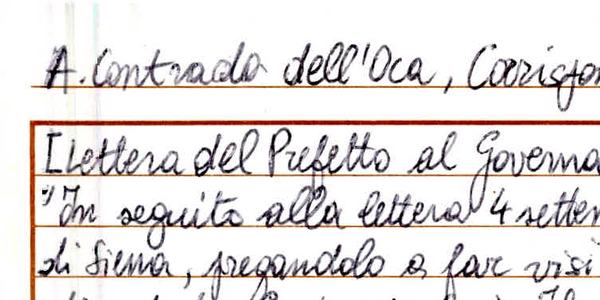 A. Contrada dell'Oca, Corrispon
[Lettera del Prefetto al Governa
"In seguito alla lettera 4 settem
di Siena, pregandolo a far visi